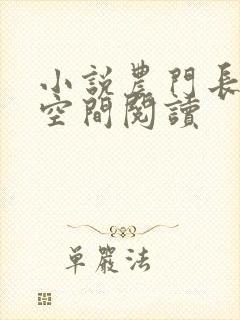 小說農門長
空間閱讀
單嚴法